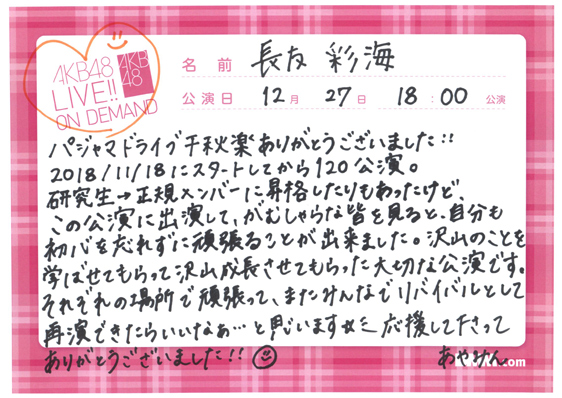 AKB48
LIVE!!
ON DEMAND
AKB
48
名前 長友 彩海
公演日 12月 27日 18:00 公演
パジャマドライブ千秋楽ありがとうございました!!
2018/11/18にスタートしてから120公演。
研究生→正規メンバーに昇格したりもあったけど、
この公演に出演して、がむしゃらな皆を見ると、自分も
初心を忘れずに頑張ることが出来ました。沢山のことを
学ばせてもらって沢山成長させてもらった大切な公演です。
それぞれの場所で頑張って、またみんなでリバイバルとして
再演できたらいいなぁ…と思います 応援して下さって
ありがとうございました!! あやみん
.com